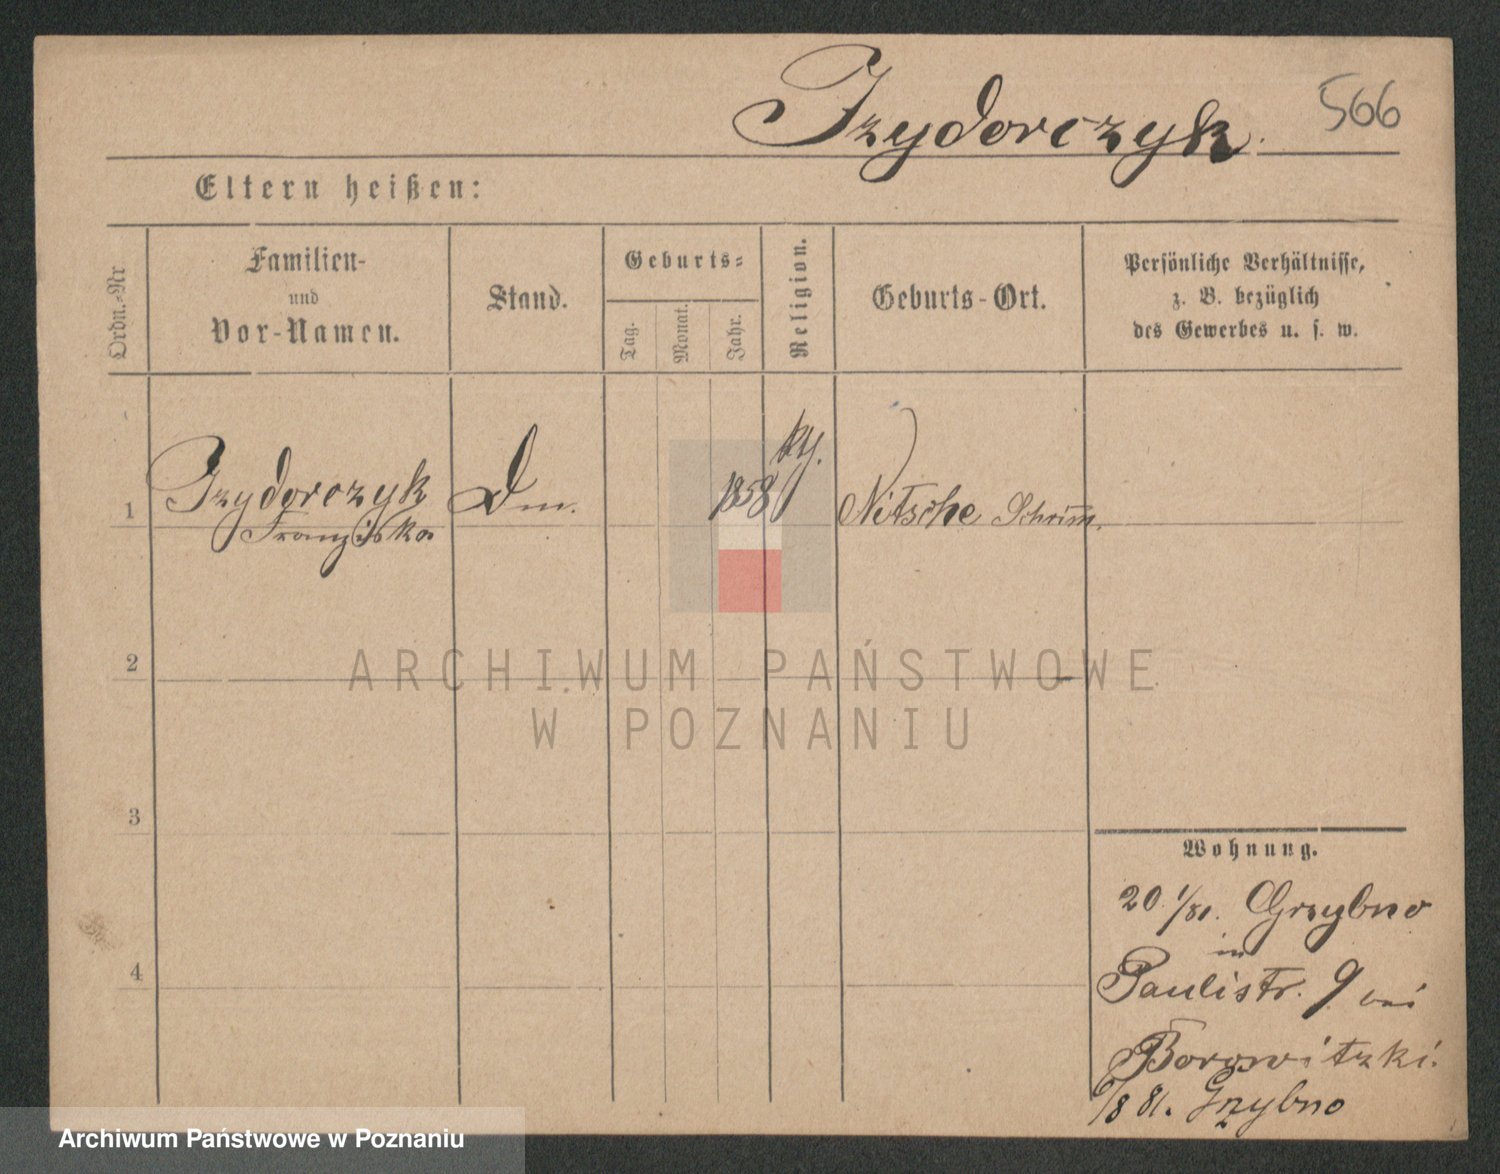 Izydorczyk. 566
Eltern heißen:
Ordn.-Nr
Familien-
und
Vor-Namen.
Stand.
Geburts-
Tag.
Monat.
Jahr.
Religion.
Geburts-Ort.
Persönliche Verhältnisse,
z. B. bezüglich
des Gewerbes u. s. w.
1 Izydorczyk Dm. 1858 Nitsche Schrim.
Franziska
2
ARCHIWUM PAŃSTWOWE
W POZNANIU
3
4
Wohnung.
20 1/81. Grzybno
in
Paulistr. 9 bei
Borowitzki.
/8 81. Grzybno
Archiwum Państwowe w Poznaniu